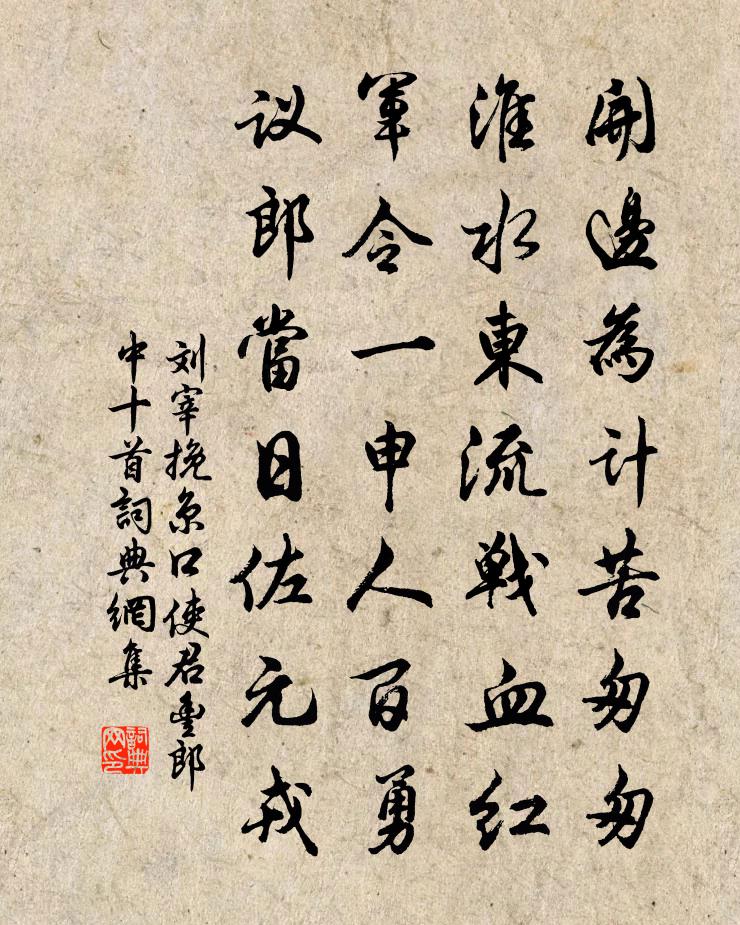 開邊為計苦匆匆
淮水東流戰血红
軍令一申人百勇
议郎當日佐元戎
刘宰挽京口使君豐郎
中十首詞典網集
詞典
网印